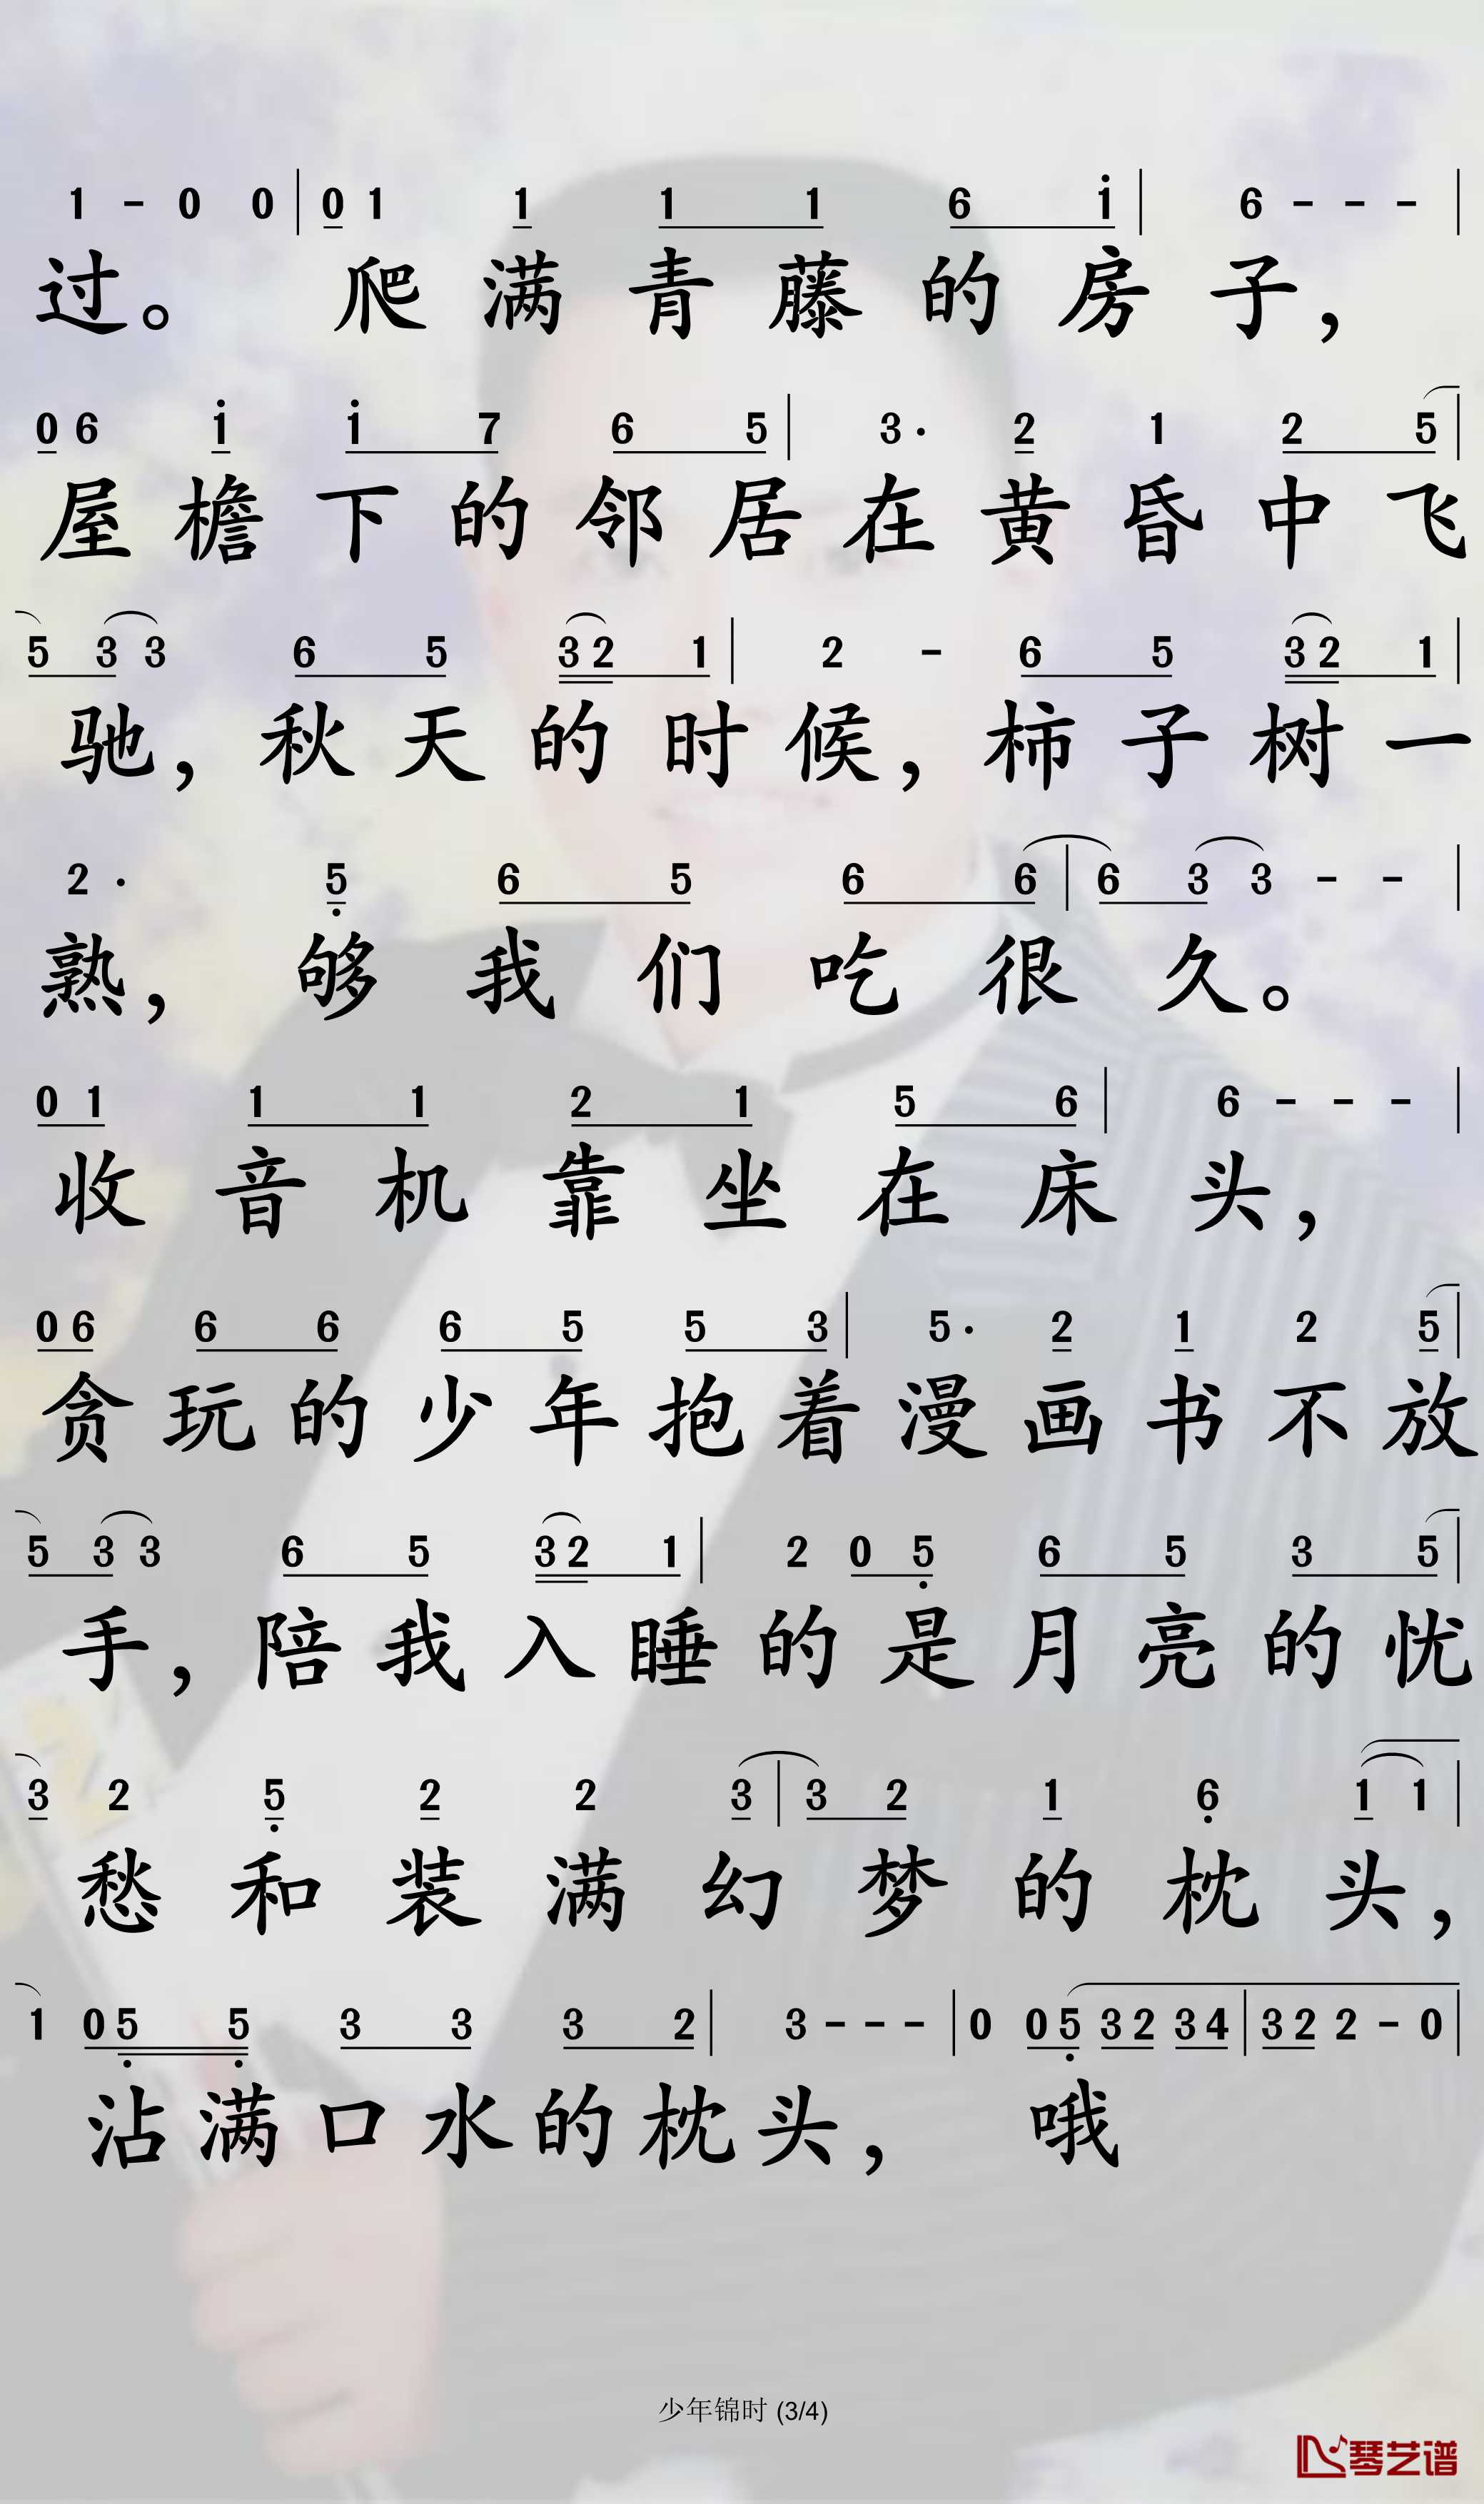 1 - 0 0 | 0 1 1 1 1 6 i | 6 - - - |
过。 爬满青藤的房子，
0 6 i i 7 6 5 | 3· 2 1 2 5 |
屋檐下的邻居在黄昏中飞
5 3 3 6 5 3 2 1 | 2 - 6 5 3 2 1 |
驰，秋天的时候，柿子树一
2· 5 6 5 6 6 | 6 3 3 - - |
熟，够我们吃很久。
0 1 1 1 2 1 5 6 | 6 - - - |
收音机靠坐在床头，
0 6 6 6 6 5 5 3 | 5· 2 1 2 5 |
贪玩的少年抱着漫画书不放
5 3 3 6 5 3 2 1 | 2 0 5 6 5 3 5 |
手，陪我入睡的是月亮的忧
3 2 5 2 2 3 | 3 2 1 6 1 1 |
愁和装满幻梦的枕头，
1 0 5 5 3 3 3 2 | 3 - - - | 0 0 5 3 2 3 4 | 3 2 2 - 0 |
沾满口水的枕头， 哦
少年锦时 (3/4)
琴艺谱